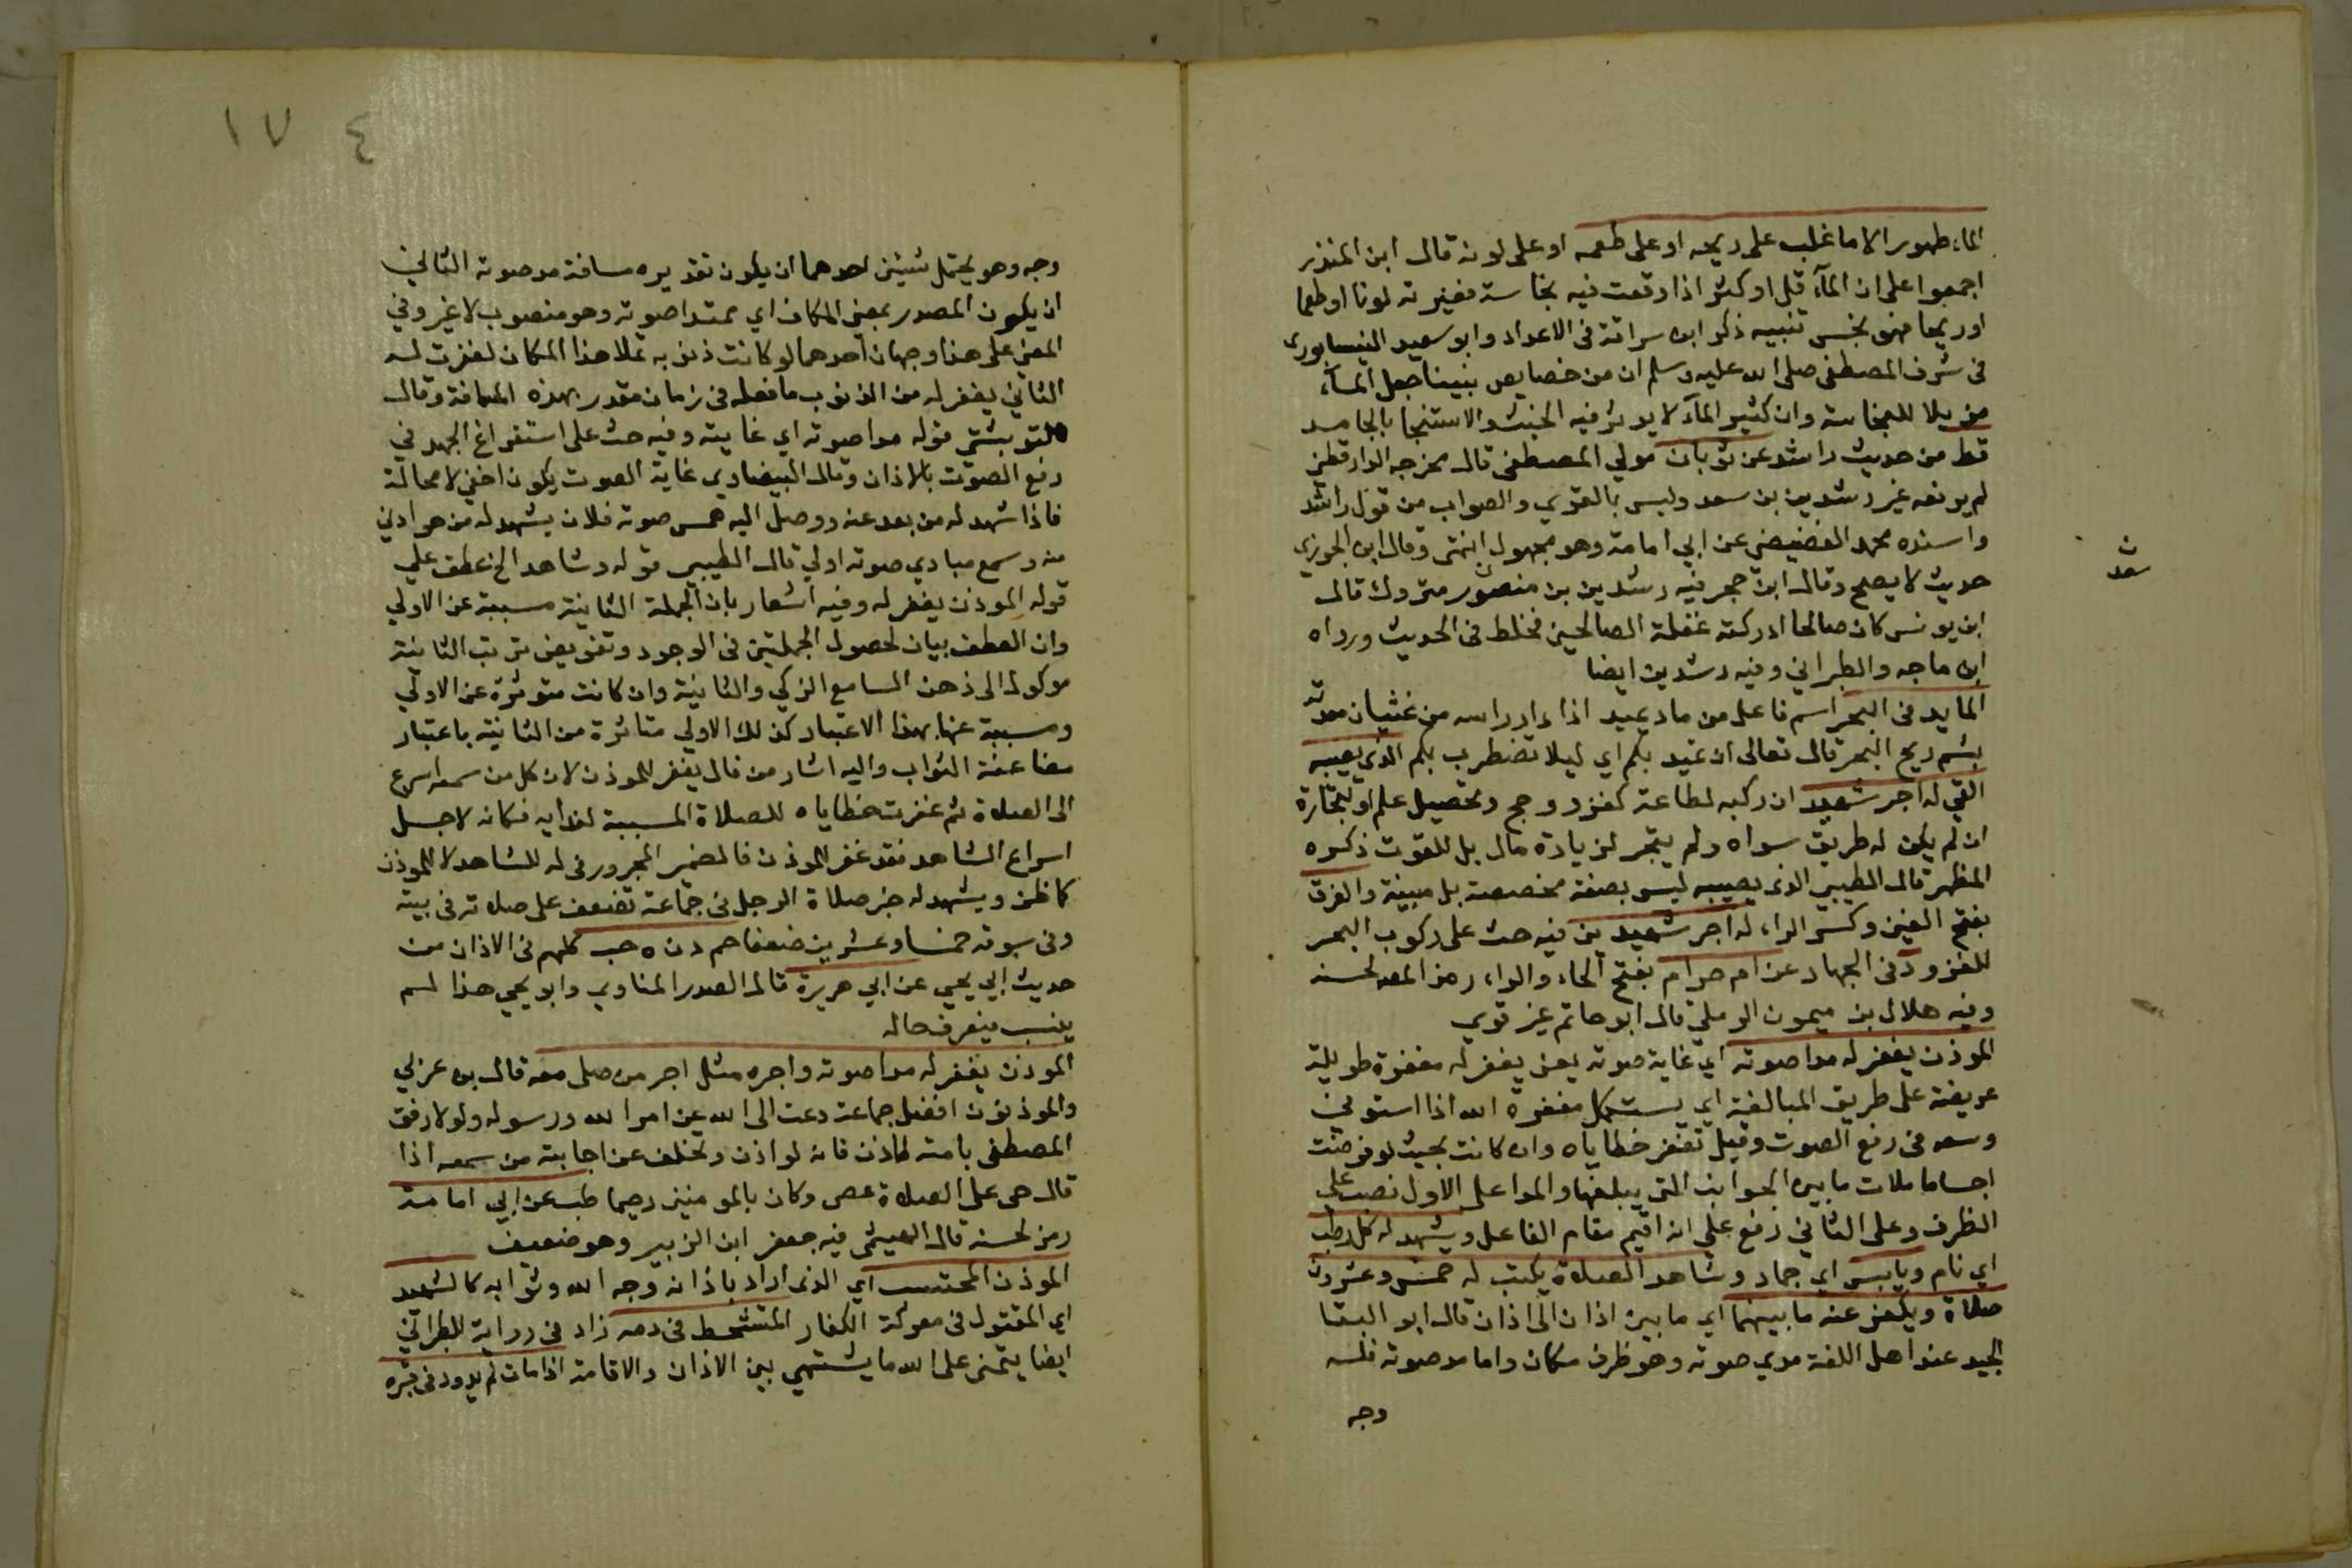 الماء طهور الا ما غلب على ريحه او على طعمه او على لونه قال ابن المنذر
اجمعوا على ان المآء قل او كثر اذا وقعت فيه نجاسة فغيرته لونا او طعما
او ريحا فهو نجس تنبيه ذكر ابن سراقة في الاعداد وابو سعيد النيسابورى
في شرف المصطفى صلى الله عليه وسلم ان من خصايص نبينا جعل المآء
مزيلا للنجاسة وان كثير المآء لا يوثر فيه الخبث والاستنجا بالجامد
قط من حديث راشد عن ثوبان مولي المصطفى قال مخرجه الدارقطني
لم يرفعه غير رشدين بن سعد وليس بالقوي والصواب من قول راشد
واسنده محمد الغضيضي عن ابي امامة وهو مجهول انتهى وقال ابن الجوزي
حديث لا يصح وقال ابن حجر فيه رشدين بن منصور متروك قال
ن
سعد
ابن يونس كان صالحا ادركته غفلة الصالحين فخلط في الحديث ورواه
ابن ماجه والطبراني وفيه رشدين ايضا
المايد في البحر اسم فاعل من ماد يميد اذا دار راسه من غثيان معدته
بشم ريح البحر قال تعالى ان تميد بكم اي ليلا تضطرب بكم الذي يصيبه
القي له اجر شهيد ان ركبه لطاعة كغزو وحج وتحصيل علم او لتجارة
ان لم يكن له طريق سواه ولم يتجر لزيادة مال بل للقوت ذكره
المظهر قال الطيبي الذي يصيبه ليس بصفة مخصصة بل مبينة والغرق
بفتح الغين وكسر الراء له اجر شهيدين فيه حث على ركوب البحر
للغزو د في الجهاد عن ام حرام بفتح الحاء والراء رمز المص لحسنه
وفيه هلال بن ميمون الرملي قال ابو حاتم غير قوي
الموذن يغفر له مدا صوته اي غاية صوته يعنى يغفر له مغفرة طويلة
عريضة على طريق المبالغة اي يستكمل مغفرة الله اذا استوفى
وسعه في رفع الصوت وقيل تغفر خطاياه وان كانت بحيث لو فرضت
اجساما ملات ما بين الجوانب التي يبلغها والمدا على الاول نصب على
الظرف وعلى الثاني رفع على انه اقيم مقام الفاعل ويشهد له كل رطب
اي نام ويابس اي جماد وشاهد الصلاة يكتب له خمس وعشرون
صلاة ويكفر عنه ما بينهما اي ما بين اذان الى اذان قال ابو البقا
الجيد عند اهل اللغة مدي صوته وهو ظرف مكان واما مد صوته فله
وجه
١٧ ٤
وجه وهو يحتمل شيئين احدهما ان يكون تقديره مسافة مد صوته الثاني
ان يكون المصدر بمعنى المكان اي ممتد صوته وهو منصوب لا غير وفي
المعنى على هذا وجهان احدهما لو كانت ذنوبه تملا هذا المكان لغفرت له
الثاني يغفر له من الذنوب ما فعله في زمان مقدر بهذه المسافة وقال
التوربشتي قوله مدا صوته اي غايته وفيه حث على استفراغ الجهد في
رفع الصوت بالاذان وقال البيضاوي غاية الصوت يكون اخفي لا محالة
فاذا شهد له من بعد عنه ووصل اليه همس صوته فلان يشهد له من هو ادني
منه وسمع مبادي صوته اولي قال الطيبي قوله وشاهد الخ عطف علي
قوله الموذن يغفر له وفيه اشعار بان الجملة الثانية مسببة عن الاولي
وان العطف بيان لحصول الجملتين في الوجود وتفويض ترتب الثانية
موكول الى ذهن السامع الزكي والثانية وان كانت متوثرة عن الاولي
ومسببة عنها بهذا الاعتبار كذلك الاولي متاثرة من الثانية باعتبار
مضاعفة الثواب واليه اشار من قال يغفر للموذن لان كل من سمعه اسرع
الى الصلاة ثم غفرت خطاياه للصلاة المسببة لندايه فكانه لاجل
اسراع الشاهد فقد غفر للموذن فالضمير المجرور في له للشاهد لا للموذن
كما ظن ويشهد له خبر صلاة الرجل في جماعة تضعف على صلاته في بيته
وفي سوقه خمسا وعشرين ضعفا حم د ن ه حب كلهم في الاذان من
حديث ابي يحيى عن ابي هريرة قال الصدر المناوي وابو يحيى هذا لم
ينسب فيعرف حاله
الموذن يغفر له مدا صوته واجره مثل اجر من صلى معه قال بن عربي
والموذنون افضل جماعة دعت الى الله عن امر الله ورسوله ولولا رفق
المصطفى بامته لاذن فانه لو اذن وتخلف عن اجابته من سمعه اذا
قال حى على الصلاة عصى وكان بالمومنين رحيما طب عن ابي امامة
رمز لحسنه قال الهيثمى فيه جعفر ابن الزبير وهو ضعيف
الموذن المحتسب اي الذي اراد باذانه وجه الله وثوابه كالشهيد
اي المقتول في معركة الكفار المتشحط في دمه زاد في رواية للطبراني
ايضا يتمنى على الله ما يشتهي بين الاذان والاقامة اذا مات لم يدود في قبره